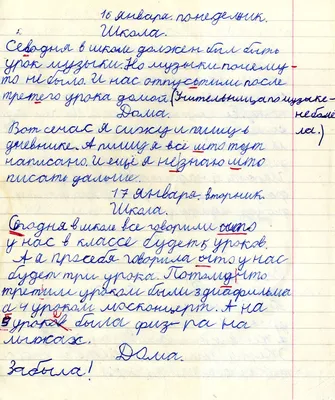 16 января понедельник.
Школа.
Севодня в школе должен был быть
урок музыки. Но музыки почему-
то не было. И нас отпустили после
третего урока домой (Учительница по музыке
Дома. не боле
Вот счас я сижу и пишу в ла.)
дневнике. А пишу я всё што тут
написано. И ещё я незнаю што
писать дальше.
17 января, вторник.
Школа.
Сегодня в школе все говорили што
у нас в классе будет 5 уроков.
А я про себя говорила што у нас
будет три урока. Потому что
третим уроком были 3 диафильма
а 4 уроком москонцерт. А на
5 уроков была физ-ра на
лыжах.
Дома.
Забыла!